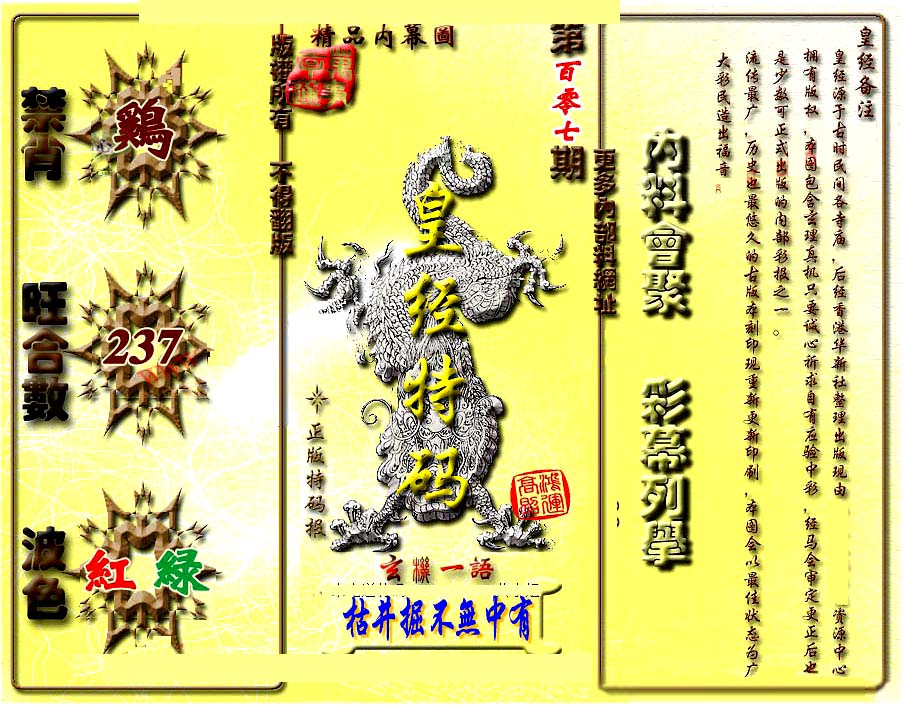 皇经备注
皇经源于古时民间各寺庙,后经香港华新社整理出版现由 资源中心
拥有版权,本图包含玄理真机只要诚心祈求自有应验中彩,经马会审定更正后也
是少数可正式出版的内部彩报之一。
流传最广,历史也最悠久的古版本刻印现重新更新印刷,本图会以最佳状态为广
大彩民造出福音。
内料會聚 彩幕列舉
更多内部料網址
第百零七期
精品内幕圖
皇经特码
正版特码报
鸿運
玄機一語
枯井掘不無中有
版權所有 不得翻版
禁肖
鷄
旺合數
237
波色
紅 綠